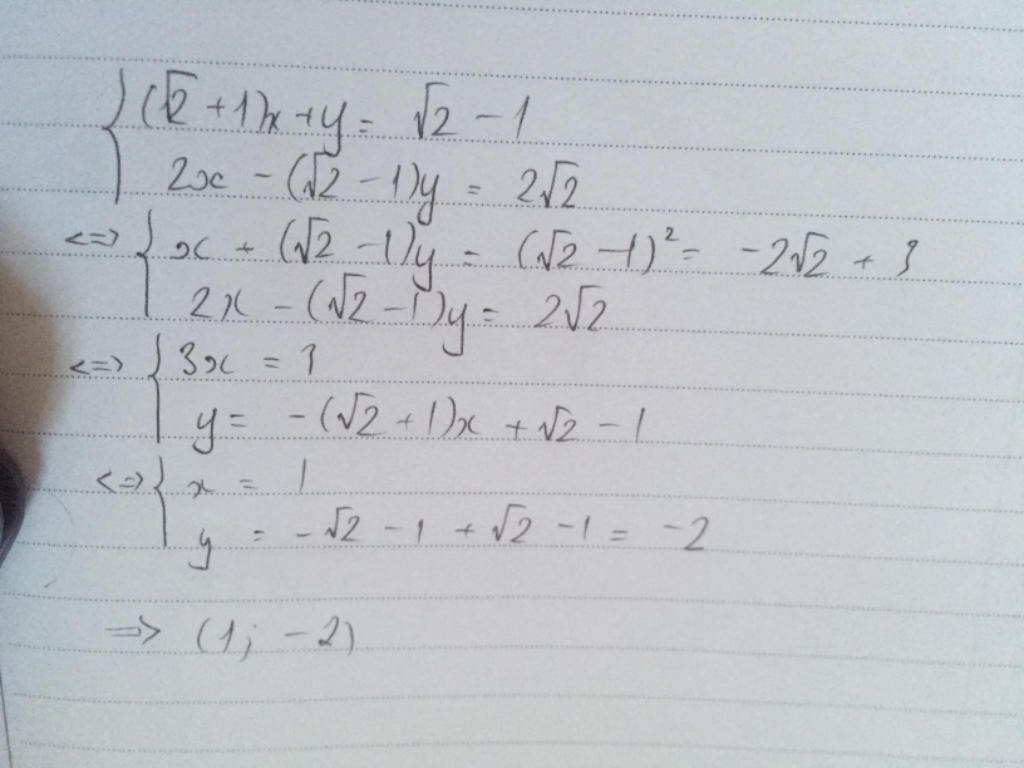 { (√2 + 1)x + y = √2 - 1
2x - (√2 - 1)y = 2√2
<=> { x + (√2 - 1)y = (√2 - 1)² = -2√2 + 3
2x - (√2 - 1)y = 2√2
<=> { 3x = 3
y = -(√2 + 1)x + √2 - 1
<=> { x = 1
y = -√2 - 1 + √2 - 1 = -2
=> (1; -2)